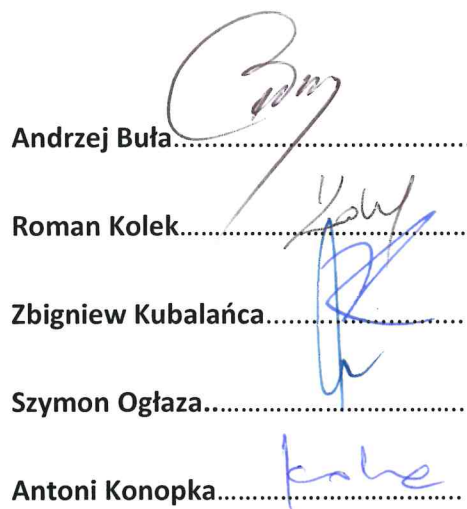 Andrzej Buła..............................
Roman Kolek..............................
Zbigniew Kubalańca..............................
Szymon Ogłaza..............................
Antoni Konopka..............................